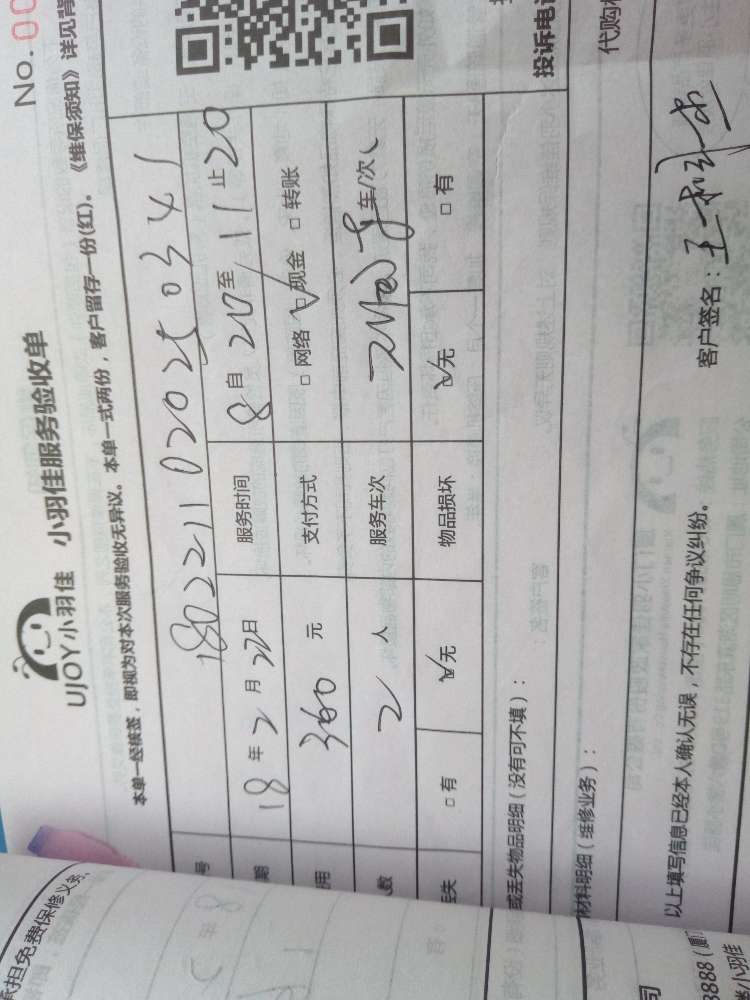 承担免费保修义务
No.
UJOY小羽佳 小羽佳服务验收单
本单一经核签，即视为对本次服务验收无异议。本单一式两份，客户留存一份(红)。《维保须知》详见背
号 1802211020250341
期 18年2月22日 服务时间 8自20至11止20
用 360元 支付方式 □网络 ☑现金 □转账
人数 2人 服务车次 车/次
丢失 □有 ☑无 物品损坏 ☑无 □有
或丢失物品明细（没有可不填）：
材料明细（维修业务）：
以上填写信息已经本人确认无误，不存在任何争议纠纷。 客户签名：
投诉电话
代购
司
8888（厦门
小羽佳